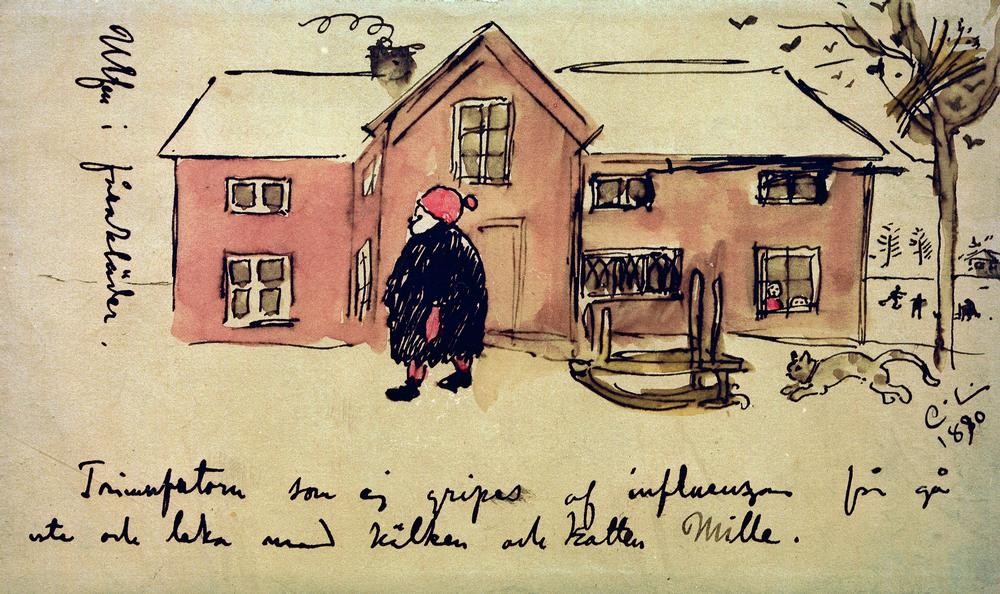 Ulfven i fårakläder.
C. L.
1890
Triumfatorn som ej gripes af influenzan får gå
ute och leka med kälken och katten Mille.